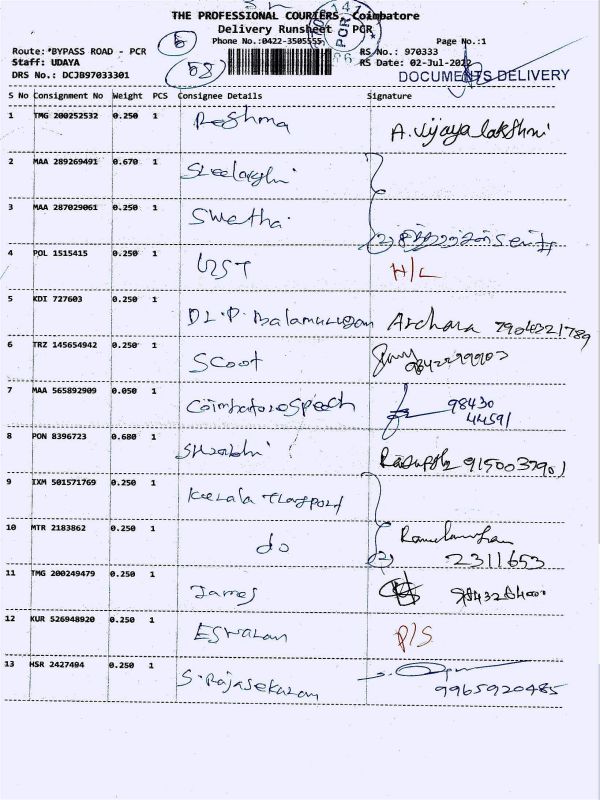 THE PROFESSIONAL COURIERS, Coimbatore
Delivery Runsheet - PCR
Phone No.:0422-3505555
Page No.:1
Route:*BYPASS ROAD - PCR
RS No.: 970333
Staff: UDAYA
58
RS Date: 02-Jul-2022
DRS No.: DCJB97033301
DOCUMENTS DELIVERY
S No Consignment No Weight PCS Consignee Details Signature
1 TMG 200252532 0.250 1 Reshma A. Vijayalakshmi
2 MAA 289269491 0.670 1
3 MAA 287029061 0.250 1 Swetha (2)
4 POL 1515415 0.250 1 UST H/L
5 KDI 727603 0.250 1 DR. P. Balamurugan Archana 7904321789
6 TRZ 145654942 0.250 1 Scoot
7 MAA 565892909 0.050 1 Coimbatore Speech 98430
44591
8 PON 8396723 0.680 1
9 IXM 501571769 0.250 1 Kerala Transport
10 MTR 2183862 0.250 1 do (2) 2311653
11 TMG 200249479 0.250 1 James
12 KUR 526948920 0.250 1 Eswaran P/S
13 HSR 2427494 0.250 1 S. Rajasekaran 9965920485